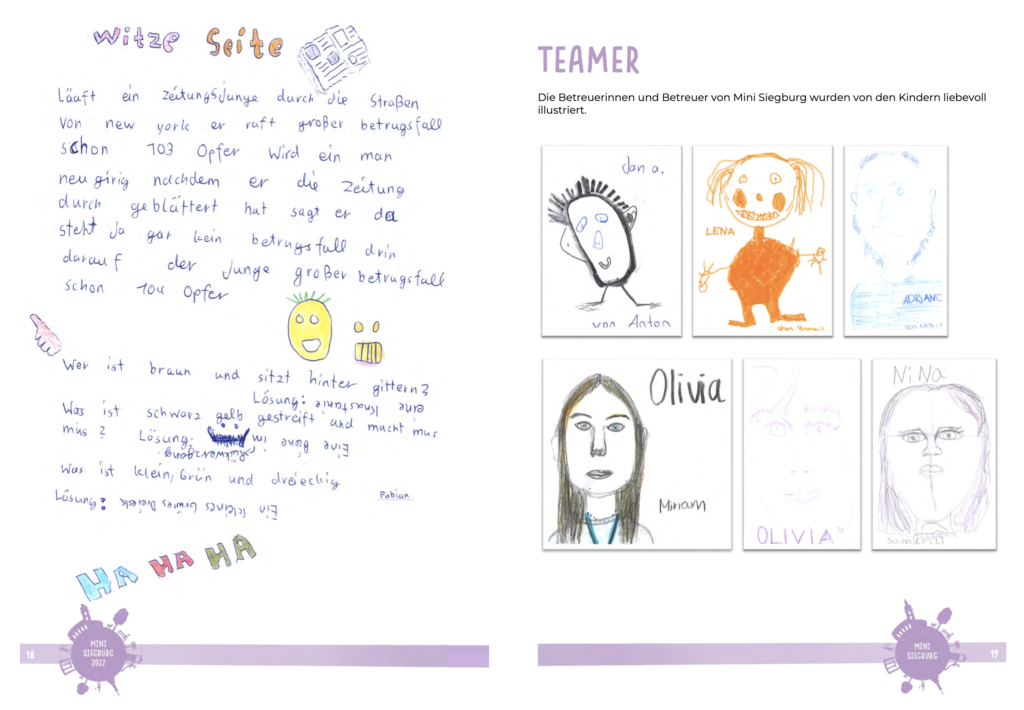 Witze Seite
Läuft ein zeitungsjunge durch die Straßen
Von new york er ruft großer betrugsfall
schon 103 Opfer wird ein man
neugirig nachdem er die zeitung
durch geblättert hat sagt er da
steht Ja gar kein betrugsfall drin
darauf der Junge großer betrugsfall
schon 104 Opfer
Wer ist braun und sitzt hinter gittern?
Lösung: eine Knastanie
Was ist schwarz gelb gestreift und macht mus
mus? Lösung: Eine biene im
Rükwerzgang
Was ist klein, Grün und dreieckig
Fabian
Lösung: Ein kleines Grünes Dreieck
HA HA HA
18
MINI
SIEGBURG
2022
TEAMER
Die Betreuerinnen und Betreuer von Mini Siegburg wurden von den Kindern liebevoll
illustriert.
Jan a.
von Anton
LENA
ADRIANO
Olivia
Miriam
OLIVIA
NiNa
MINI
SIEGBURG
19